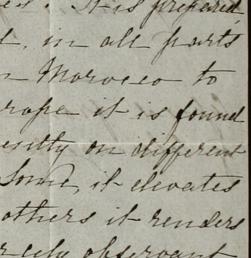 It is prepared
in all parts
Morocco to
it is found
on different
Some, it elevates
others it renders
observant